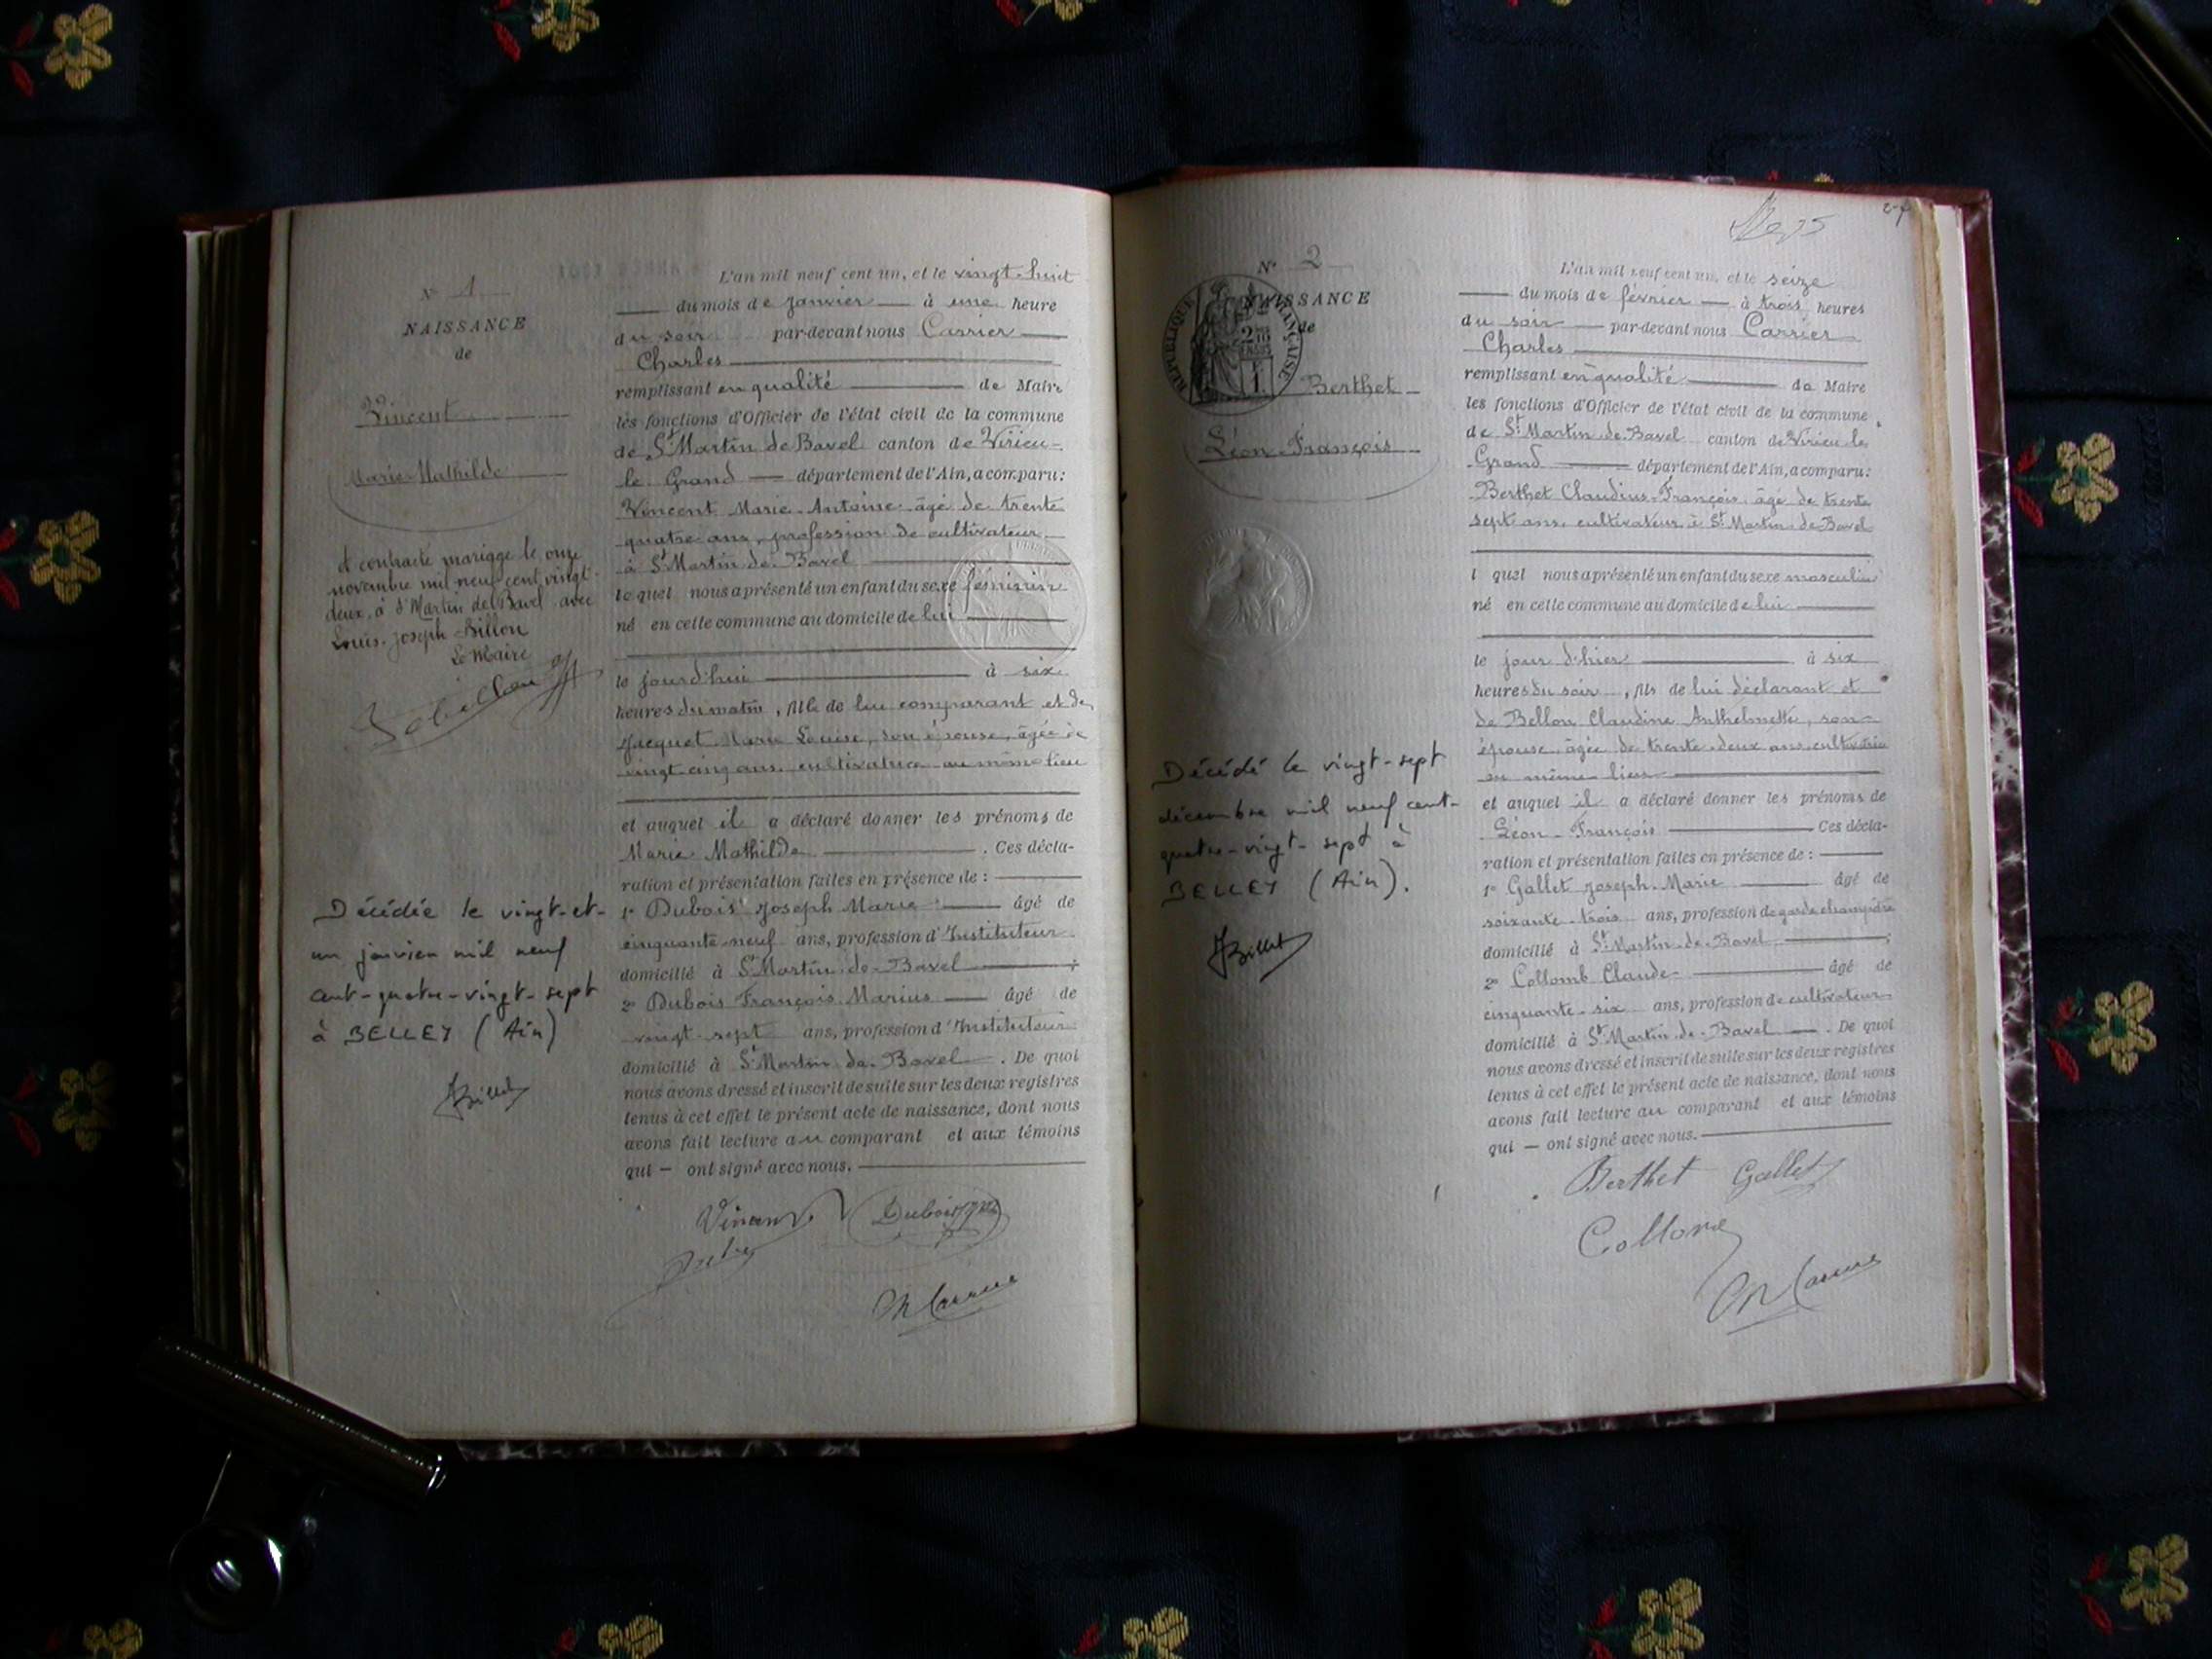 N° 1
NAISSANCE
de
Vincent
Marie Mathilde
a contracté mariage le onze
novembre mil neuf cent vingt-
deux, à St Martin de Bavel avec
Louis-Joseph Billon
Le Maire
Décédée le vingt-et-
un janvier mil neuf
cent-quatre-vingt-sept
à BELLEY (Ain)
L'an mil neuf cent un, et le vingt-huit
du mois de janvier à une heure
du soir par-devant nous Carrier
Charles
remplissant en qualité de Maire
les fonctions d'Officier de l'état civil de la commune
de St Martin de Bavel canton de Virieu-
le Grand département de l'Ain, a comparu:
Vincent Marie-Antoine âgé de trente
quatre ans, profession de cultivateur
à St Martin de Bavel
lequel nous a présenté un enfant du sexe féminin
né en cette commune au domicile de lui
le jourd'hui à six
heures du matin, fille de lui comparant et de
Jacquet Marie Louise, son épouse, âgée de
vingt cinq ans, cultivatrice au même lieu
et auquel il a déclaré donner les prénoms de
Marie Mathilde . Ces décla-
ration et présentation faites en présence de :
1° Dubois Joseph Marie âgé de
cinquante-neuf ans, profession d'Instituteur
domicilié à St Martin-de-Bavel ;
2° Dubois François Marius âgé de
vingt-sept ans, profession d'Instituteur
domicilié à St Martin de Bavel . De quoi
nous avons dressé et inscrit de suite sur les deux registres
tenus à cet effet le présent acte de naissance, dont nous
avons fait lecture au comparant et aux témoins
qui — ont signé avec nous.
Vincent Dubois
N° 2
NAISSANCE
de
REPUBLIQUE FRANÇAISE
Berthet
Léon-François
Décédé le vingt-sept
décembre mil neuf cent-
quatre-vingt-sept à
BELLEY (Ain).
L'an mil neuf cent un, et le seize
du mois de février à trois heures
du soir par-devant nous Carrier
Charles
remplissant en qualité de Maire
les fonctions d'Officier de l'état civil de la commune
de St Martin-de-Bavel canton de Virieu le
Grand département de l'Ain, a comparu:
Berthet Claudius-François âgé de trente
sept ans, cultivateur à St Martin-de-Bavel
l quel nous a présenté un enfant du sexe masculin
né en cette commune au domicile de lui
le jour d'hier à six
heures du soir, fils de lui déclarant et
de Bellon Claudine Anthelmette, son
épouse, âgée de trente-deux ans, cultivatrice
au même lieu
et auquel il a déclaré donner les prénoms de
Léon-François Ces décla-
ration et présentation faites en présence de :
1° Gallet Joseph-Marie âgé de
soixante-trois ans, profession de garde champêtre
domicilié à St Martin-de-Bavel ;
2° Collomb Claude âgé de
cinquante-six ans, profession de cultivateur
domicilié à St Martin-de-Bavel . De quoi
nous avons dressé et inscrit de suite sur les deux registres
tenus à cet effet le présent acte de naissance, dont nous
avons fait lecture au comparant et aux témoins
qui — ont signé avec nous.
Berthet Gallet